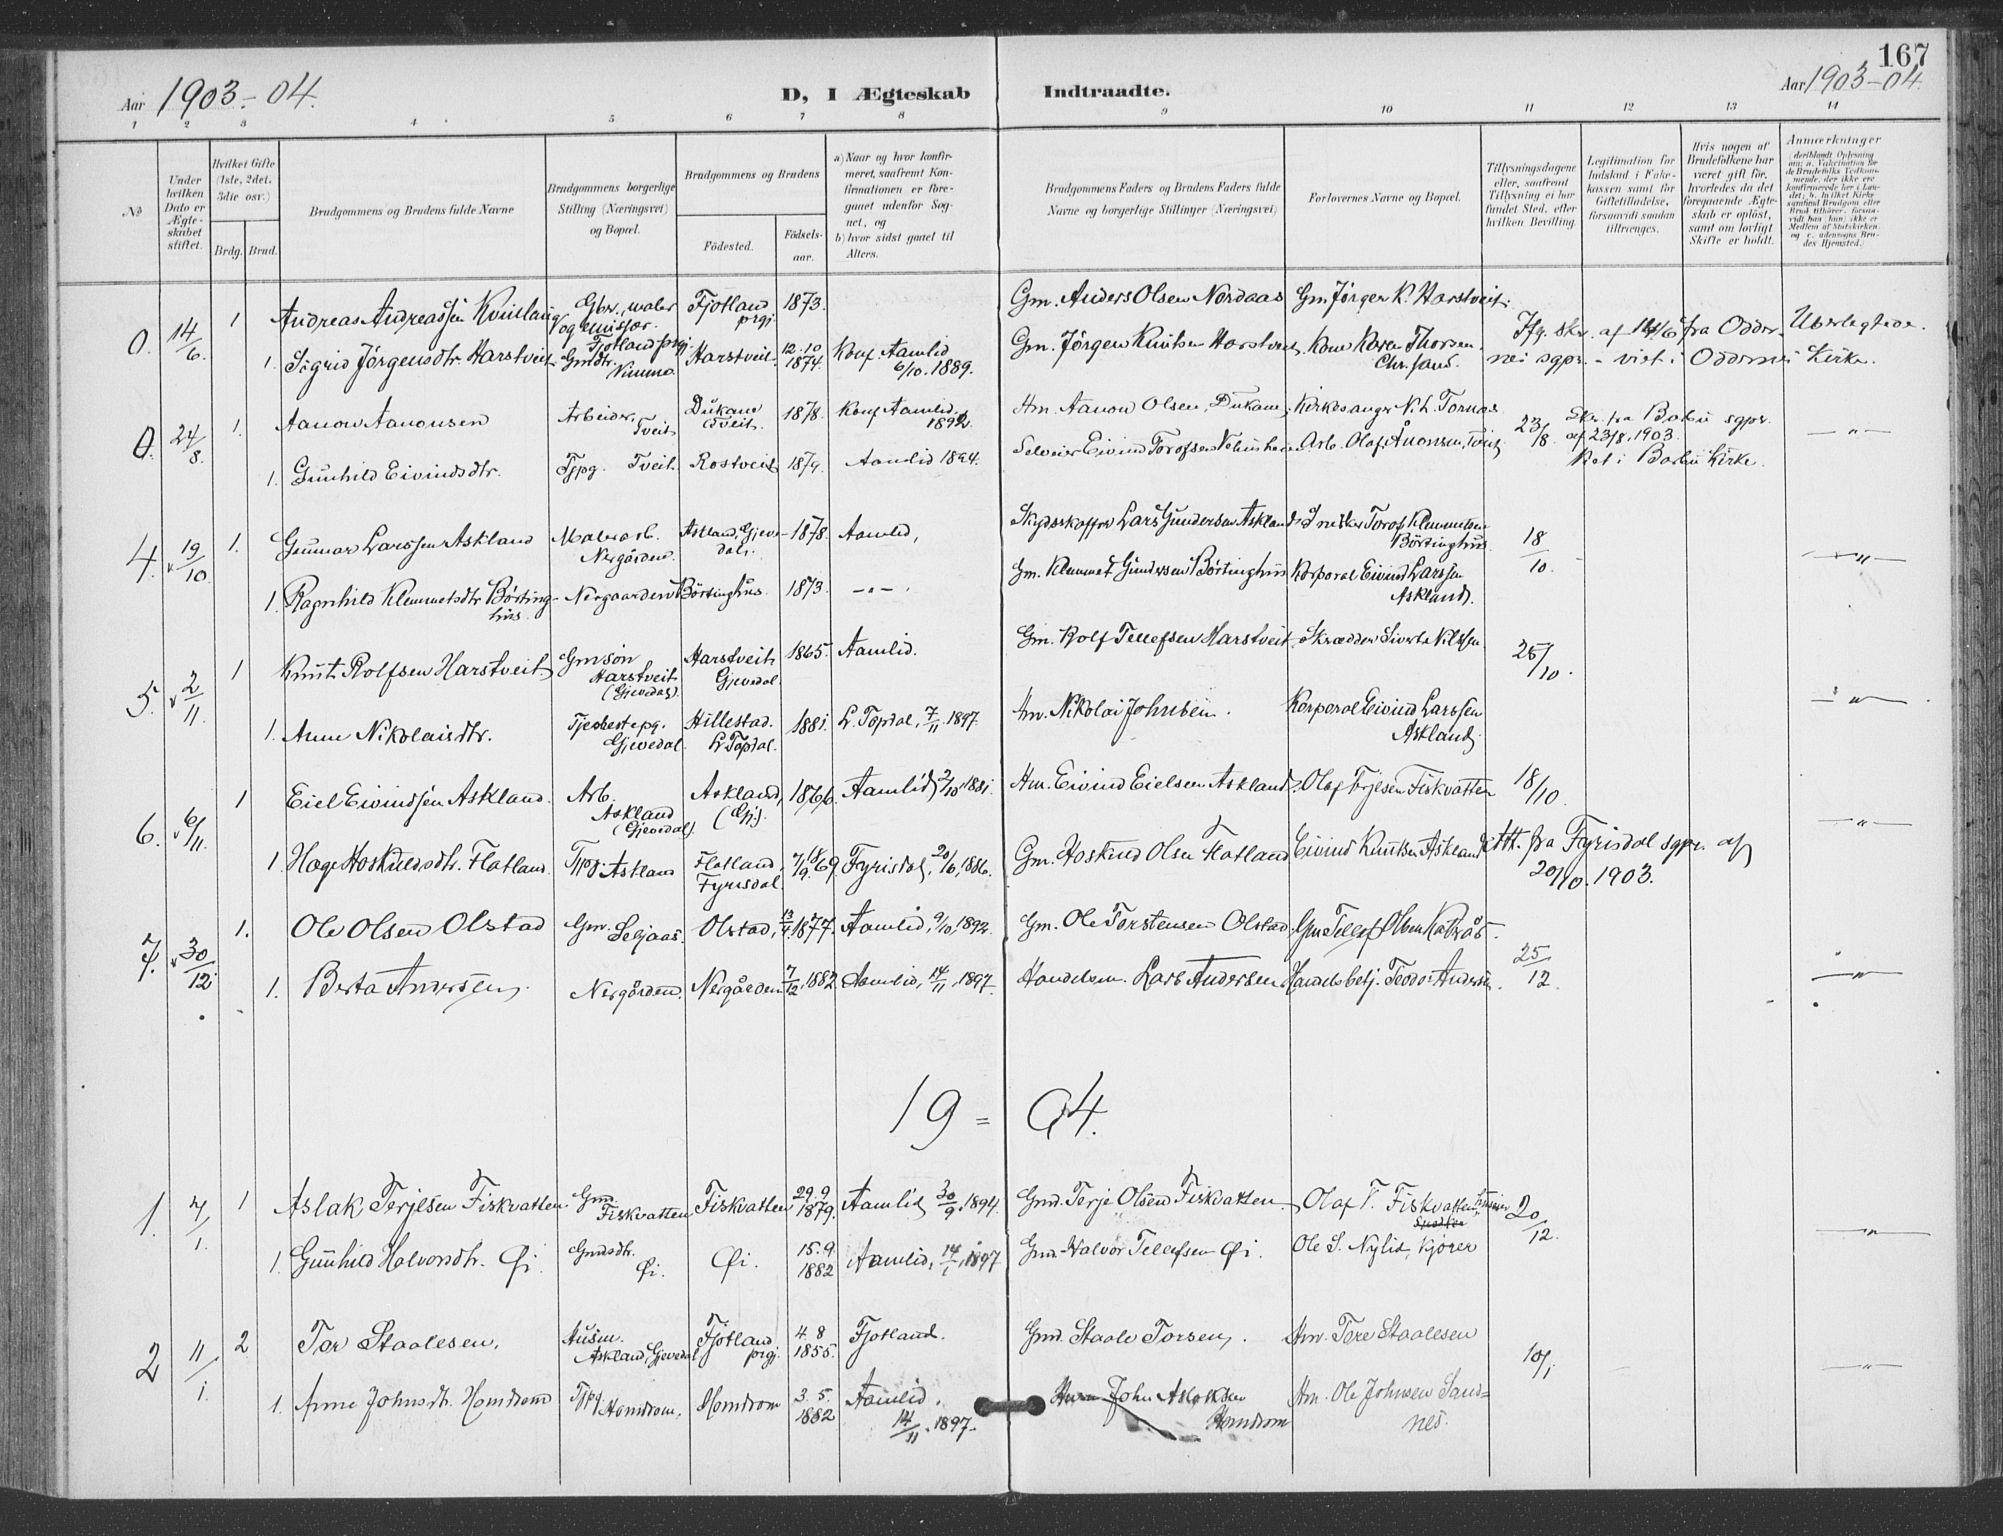 167
Aar 1903-04. D, I Ægteskab Indtraadte. Aar 1903-04.
1 2 3 4 5 6 7 8 9 10 11 12 13 14
No
Under hvilken Dato er Ægteskabet stiftet.
Hvilket Gifte (1ste, 2det, 3die osv.)
Brdg. Brud.
Brudgommens og Brudens fulde Navne
Brudgommens borgerlige Stilling (Næringsvei) og Bopæl.
Brudgommens og Brudens
Fødested. Fødselsaar.
a) Naar og hvor konfirmeret, saafremt Konfirmationen er foregaaet udenfor Sognet, og
b) hvor sidst gaaet til Alters.
Brudgommens Faders og Brudens Faders fulde Navne og borgerlige Stillinger (Næringsvei)
Forlovernes Navne og Bopæl.
Tillysningsdagene eller, saafremt Tillysning ei har fundet Sted, efter hvilken Bevilling.
Legitimation for Indskud i Fakkekassen samt for Giftetilladelse, forsaavidt saadan tiltrænges.
Hvis nogen af Brudefolkene har været gift før, hvorledes da det foregaaende Ægteskab er opløst, samt om lovligt Skifte er holdt.
Anmærkninger
0. 14/6. 1 Andreas Andreassen Kvinlaug Gbr., maler og emissær. Fjotland prgj. Fjotland prgj. 1873. Gm. Anders Olsen Nordaas Gm Jørgen K. Harstveit.
1. Sigrid Jørgensdtr. Harstveit Gmdtr. Harstveit. 12.10 1874. Konf. Aamlid 6/10. 1889. Gm. Jørgen Knutsen Harstveit Kone Karen Thorsen Chr.sand.
Ifg. skr. af 14/6 fra Oddernes sgpr. - viet i Oddernes Kirke.
0. 24/8. 1. Aanon Aanonsen Arbeider, Tveit Dukane Tveit. 1878. Konf Aamlid 1892 Hm. Aanon Olsen, Dukane Kirkesanger N. L. Tornaa 23/8 Skr. fra Barbu sgpr. af 23/8, 1903.
1. Gunhild Eivindsdtr. Tjpg. Tveit. Rostveit 1874. Aamlid 1894. Selveier Eivind Torofsen Arb. Olaf Aanonsen, Tveit Viet i Barbu Kirke. — " —
4. 19/10 1. Gunnar Larssen Askland Malerarb. Nergården. Askland, Gjevedal. 1878. Aamlid, Skydsskaffer Lars Gundersen Askland Snikker Torof Klemmetsen Börtinghus. 18/10.
1. Ragnhild Klemmetsdtr Börtinghus. Nergaarden Börtinghus. 1873. — " —. Gm. Klemmet Gundersen Börtinghus Korporal Eivind Larssen Askland. — " —
5. 2/11. 1 Knut Rolfsen Harstveit Gmsøn Harstveit (Gjevedal). Harstveit Gjevedal. 1865. Aamlid. Gm. Rolf Tellefsen Harstveit Skrædder Sivert Nilssen. 25/10.
1. Anne Nikolaisdtr. Tjenestepg. Gjevedal. Hillestad. L. Topdal. 1881. L. Topdal, 7/11. 1897. Hm. Nikolai Johnsen. Korporal Eivind Larssen Askland. — " —
6. 6/11. 1 Eiel Eivindsen Askland. Arb. Askland (Gjevedal). Askland, (Gj). 1866. Aamlid, 2/10 1881. Hm. Eivind Eielsen Askland. Olaf Terjesen Fiskvatten 18/10.
1 Hæge Hoskuldsdtr. Flatland. Tjpg Askland Flatland, Fyrisdal 7/9. 1869. Fyrisdal, 20/6, 1886. Gm. Hoskuld Olsen Flatland Eivind Knutsen Askland Att. fra Fyrisdal sgpr. af 20/10. 1903. — " —
7. 30/12 1. Ole Olsen Olstad Gm. Seljaas. Olstad, 13/4. 1877. Aamlid, 9/10, 1892. Gm. Ole Torstensen Olstad. Gm Tellef Olsen Katraas. 25/12.
1. Berta Andersen. Nergården. Nergården 7/12, 1882 Aamlid, 14/11, 1897. Handelsm. Lars Andersen Handelsbetj. Teodor Andersen. — " —
19 = 04.
1. 7/1. 1 Aslak Terjesen Fiskvatten Gm. Fiskvatten Fiskvatten 29.9 1879. Aamlid 30/9, 1894. Gmd. Terje Olsen Fiskvatten. Olaf T. Fiskvatten 20/12.
1. Gunhild Halvorsdtr. Øi. Gmdsdtr. Øi. Øi. 15.9. 1882 Aamlid, 14/1, 1897 Gmd. Halvor Tellefsen Øi. Ole S. Nylid, Kjører — " —
2 11/1. 2 Tor Staalesen. Husm. Askland, Gjevedal Fjotland prgj. 4.8 1855. Fjotland. Gmd. Staale Torsen. Hm. Tore Staalesen 10/1
1. Anne Johnsdt. Homdrom Tjpg. Homdrom. Homdrom 3.5. 1882 Aamlid. 14/11. 1897. John Aslaksen Homdrom Hm. Ole Johnsen Sandnes. — " —